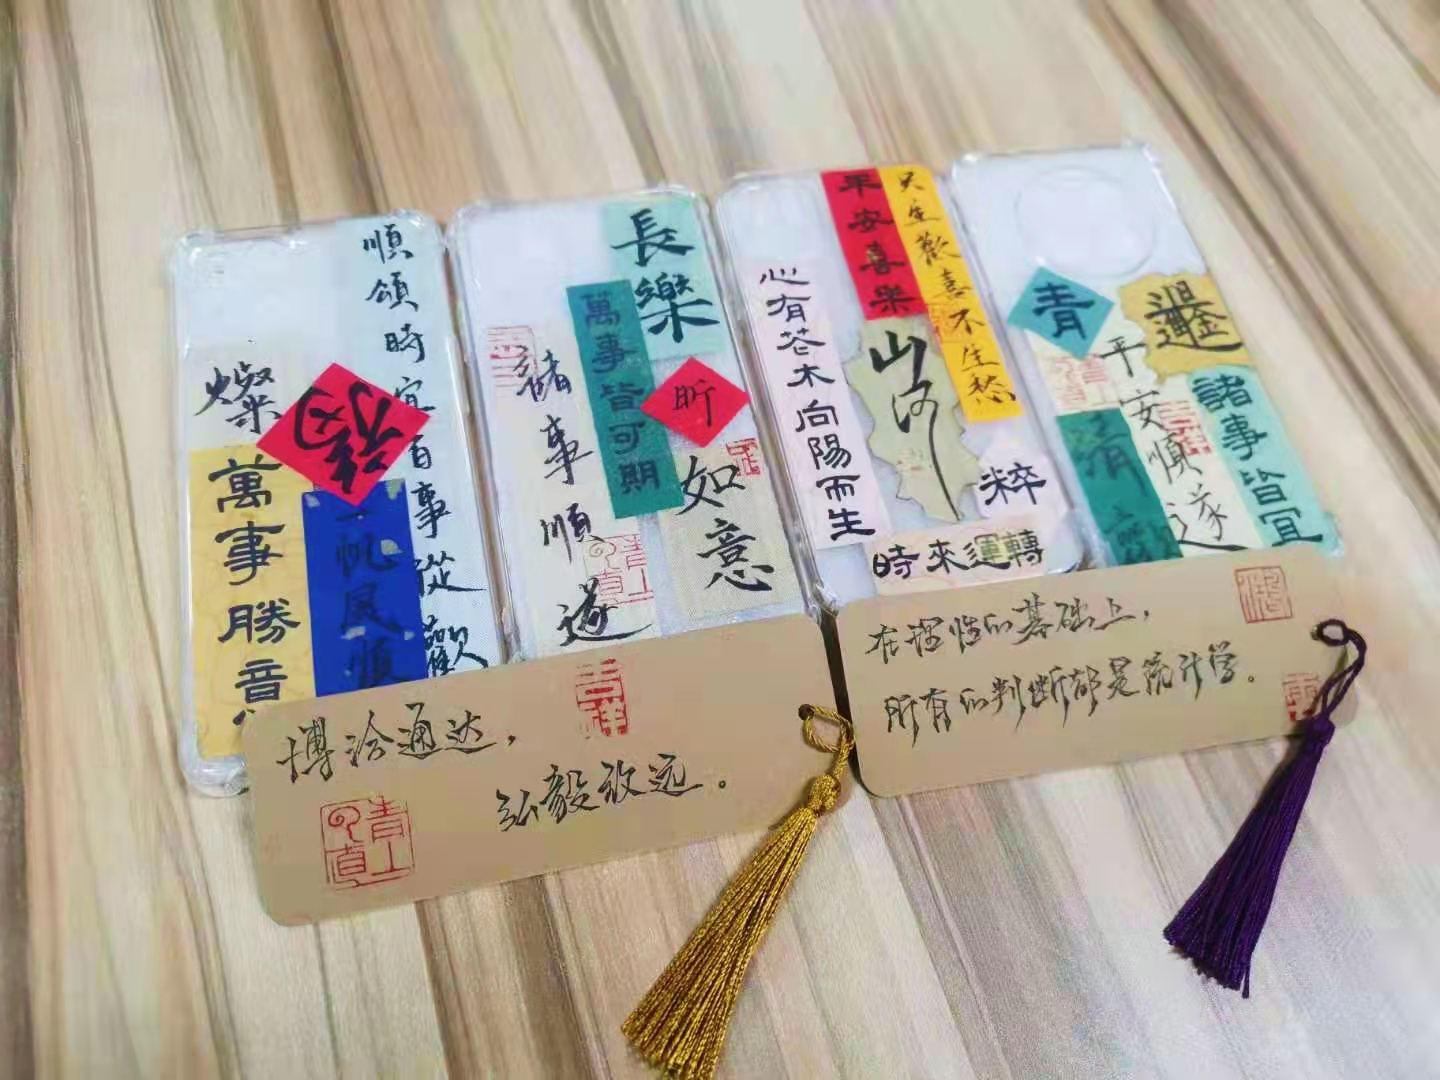 順頌時宜百事從歡
燦
萬事勝意
一帆風順
長樂
萬事皆可期
諸事順遂
昕
如意
平安喜樂
只生歡喜不生愁
心有芒木向陽而生
山河
粹
時來運轉
青
平安順遂
諸事皆宜
清
博洽通达，
弘毅致远。
吉祥
在理性的基础上，
所有的判断都是统计学。